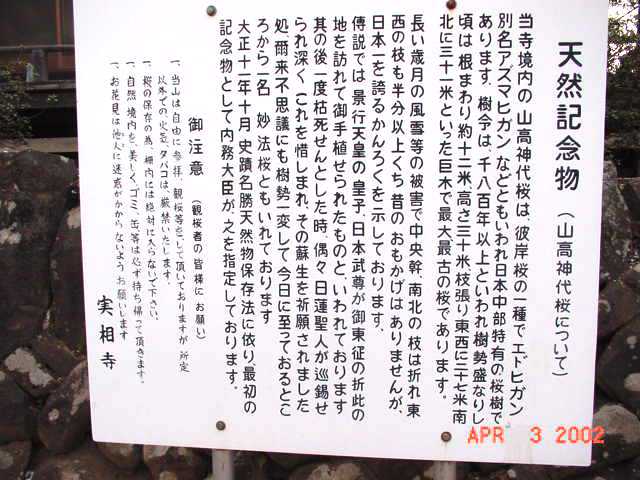 天然記念物（山高神代桜について）
当寺境内の山高神代桜は、彼岸桜の一種で エドヒガン
別名アズマヒガン などともいわれ日本中部特有の桜樹で
あります。樹令は、千八百年以上といわれ樹勢盛なりし
頃は 根まわり約十二米、高さ三十米枝張り東西に三十七米南
北に三十一米といった巨木で最大最古の桜であります。
長い歳月の風雪等の被害で中央幹、南北の枝は折れ東
西の枝も半分以上くち昔のおもかげは ありませんが、
日本一を誇るかんろくを示しております、
伝説では 景行天皇の皇子、日本武尊が御東征の折此の
地を訪れて御手植せられたものと、いわれております
其の後一度枯死せんとした時、偶々日蓮聖人が巡錫せ
られ深く これを惜しまれ、その蘇生を祈願されました
処、爾来不思議にも樹勢一変して今日に至っておるとこ
ろから一名 妙法桜ともいれております
大正十一年十月 史蹟名勝天然物保存法に依り、最初の
記念物として内務大臣が、之を指定しております。
御注意（観桜者の皆様に お願い）
一、当山は自由に参拝、観桜等をして頂いておりますが 所定
以外での火気、タバコは、厳禁いたします。
一、桜の保存の為、柵内には絶対に入らないで下さい、
一、自然、境内を、美しく、ゴミ、缶等は必ず持ち帰って頂きます。
一、お花見は他人に迷惑がかからないよう お願いします
実相寺
APR 3 2002